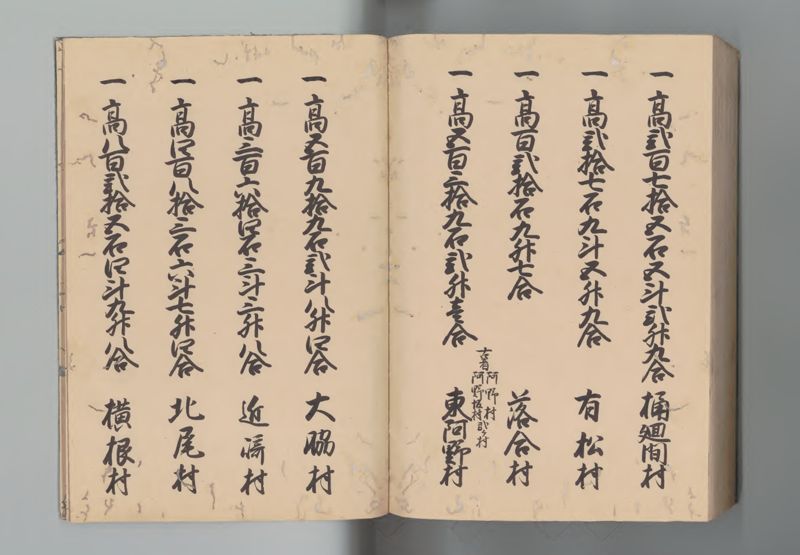 一高弐百七拾五石五斗弐升九合 桶廻間村
一高弐拾七石九斗五升九合 有松村
一高百弐拾石九升七合 落合村
古者阿野村
阿野坂村弐ケ村
一高五百三拾九石弐升壱合 東阿野村
一高五百九拾九石弐斗八升四合 大脇村
一高三百六拾四石三斗三升八合 近崎村
一高四百八拾三石六斗七升四合 北尾村
一高八百弐拾五石四斗九升八合 横根村